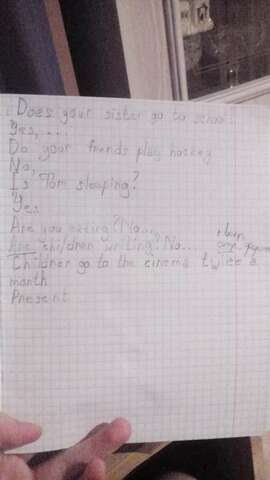 Does your sister go to school.
Yes, ...
Do your friends play hockey
No,
Is Tom sleeping?
Yes
Are you eating? No...
Are children writing? No...
Children go to the cinema twice a
month
Present